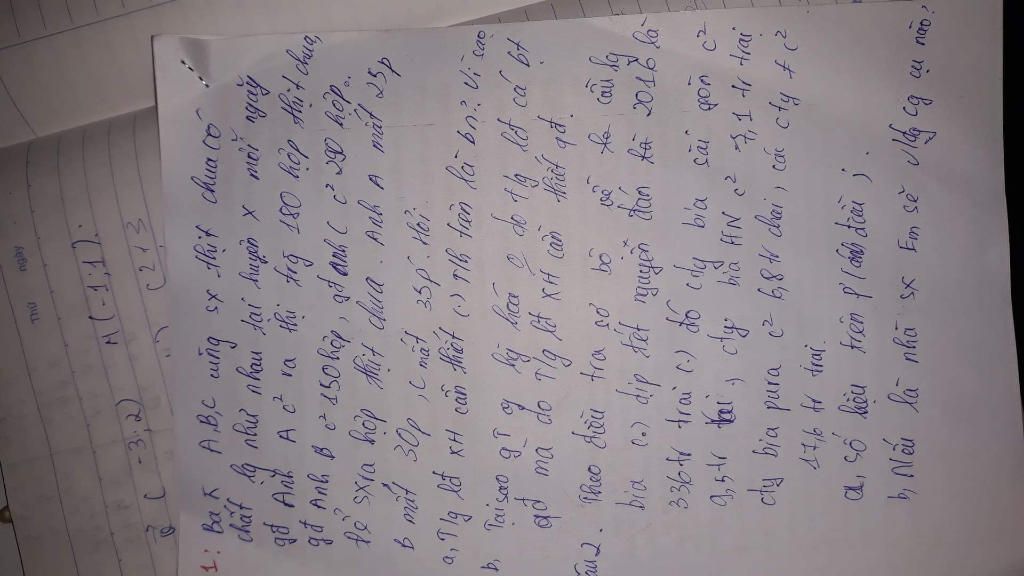 Thứ ngày
C (-3;2) A(-1;1).
C 2+3
1: Ba K A,B,C cùng sx thịt chua có
chất lg như nhau tại huyện X mỗi ngày
gđ Anh A c² ra thị trg 180 hộp thịt chua,
gđ Anh B c² 150 hộp, gđ anh C c² 290 hộp.
Để sx ra hộp thịt chua. Anh A mất 25p
B mất 30p, C mất 35p. Hỏi.
a, T/g lđ XH cần thiết (.) TH trên là bn? Vì sao
b, Tại sao gT hg hoá 0 do t/g lđ cá bt
qđ mà do T/g lđ XH cần thiết qđ.
câu 2. Theo điều tra sơ bộ về cầu lg
bia (.) dịp tết nguyên đán 2016 là
336 tr trai (.) đó cty bia sài gòn c²
9,5 tr trai, cty bia HN c² 7,1 tr trai
cty bia pura c² 6,8 tr chai, các cty # c²
17,6 tr trai.
a, số liệu trên P/ánh điều j
b, Nếu là nhà sx Em sẽ v/dg cg cụ nào?